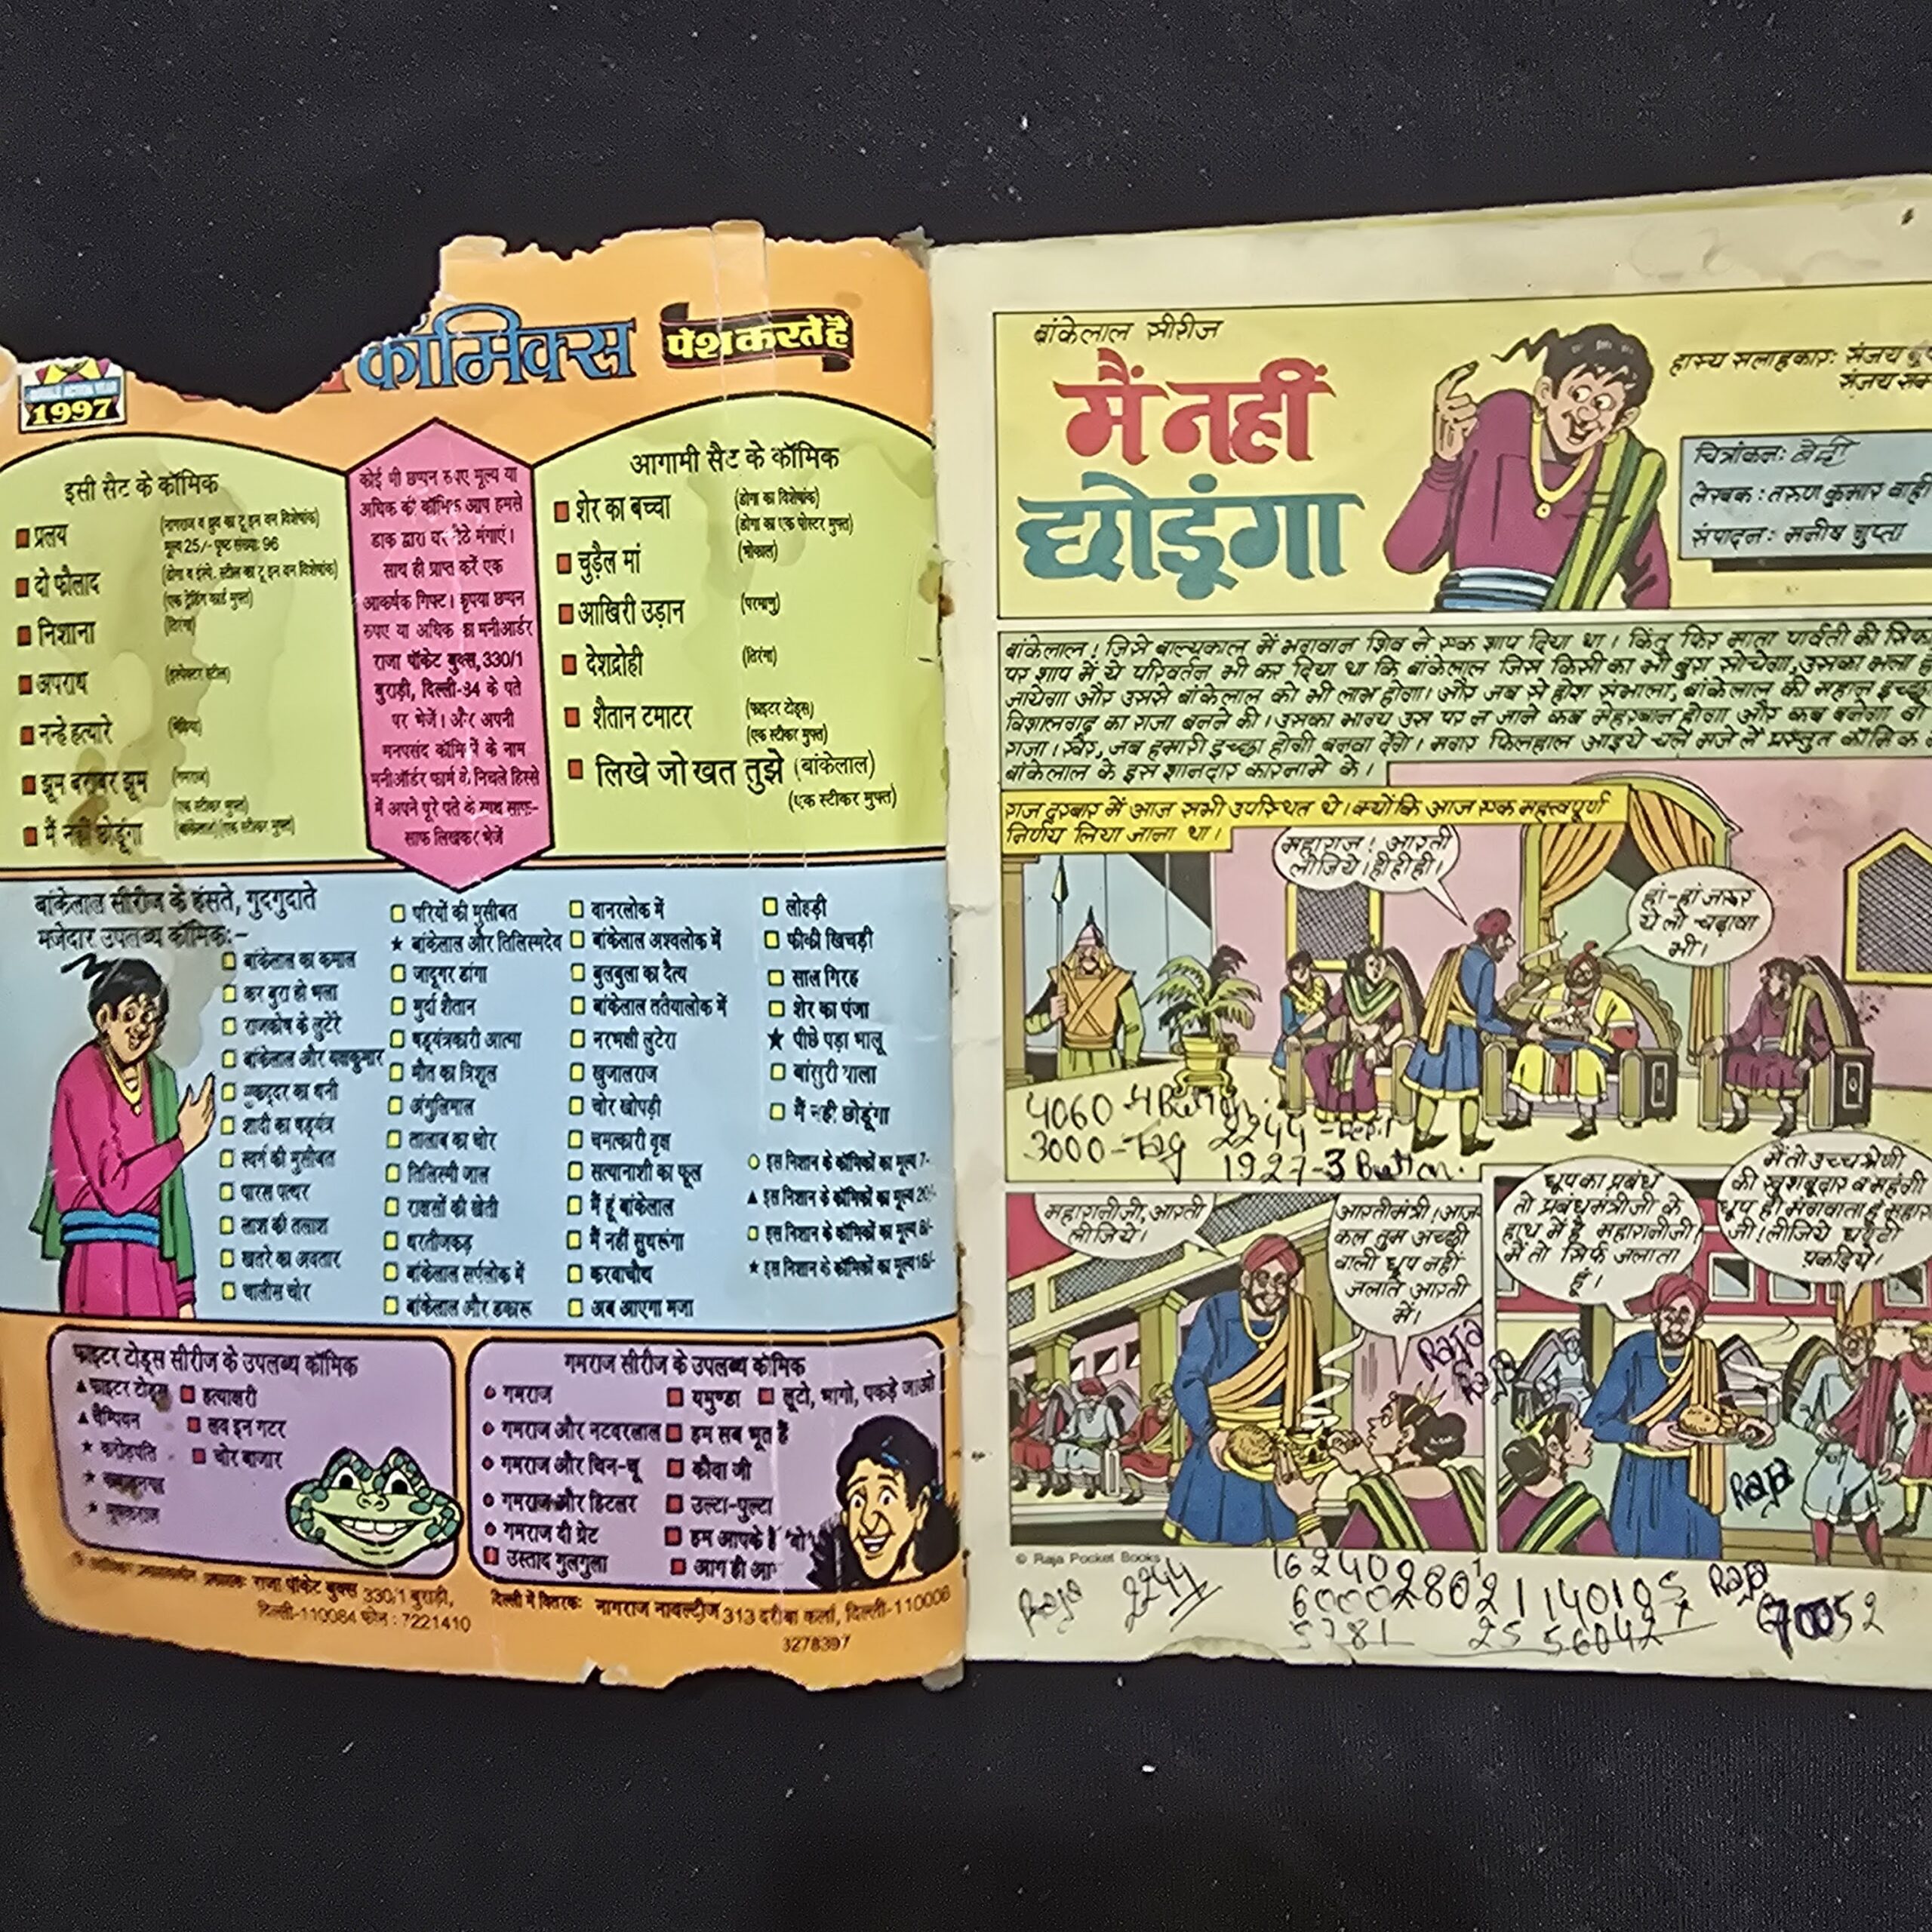 कॉमिक्स पेश करते हैं
1997
इसी सैट के कॉमिक
प्रलय (नागराज व ध्रुव का टू इन वन विशेषांक)
मूल्य 25/- पृष्ठ संख्या: 96
दो फौलाद (डोगा व इंस्पे. स्टील का टू इन वन विशेषांक)
(एक ट्रेडिंग कार्ड मुफ्त)
निशाना (तिरंगा)
अपराध (इंस्पेक्टर स्टील)
नन्हे हत्यारे
झूम बराबर झूम (गमराज)
(एक स्टीकर मुफ्त)
मैं नहीं छोडूंगा (बांकेलाल) (एक स्टीकर मुफ्त)
कोई भी छप्पन रुपए मूल्य या
अधिक की कॉमिक आप हमसे
डाक द्वारा घर बैठे मंगाएं।
साथ ही प्राप्त करें एक
आकर्षक गिफ्ट। कृपया छप्पन
रुपए या अधिक का मनीआर्डर
राजा पॉकेट बुक्स, 330/1
बुराड़ी, दिल्ली-84 के पते
पर भेजें। और अपनी
मनपसंद कॉमिकों के नाम
मनीऑर्डर फार्म के निचले हिस्से
में अपने पूरे पते के साथ साफ-
साफ लिखकर भेजें
आगामी सैट के कॉमिक
शेर का बच्चा (डोगा का विशेषांक)
(डोगा का एक पोस्टर मुफ्त)
चुड़ैल मां (भोकाल)
आखिरी उड़ान (परमाणु)
देशद्रोही (तिरंगा)
शैतान टमाटर (फाइटर टोड्स)
(एक स्टीकर मुफ्त)
लिखे जो खत तुझे (बांकेलाल)
(एक स्टीकर मुफ्त)
बांकेलाल सीरीज के हंसते, गुदगुदाते
मजेदार उपलब्ध कॉमिक:-
बांकेलाल का कमाल
कर बुरा हो भला
राजकोष के लुटेरे
बांकेलाल और यक्षकुमार
मुकद्दर का धनी
शादी का षड्यंत्र
स्वर्ग की मुसीबत
पारस पत्थर
लाश की तलाश
खतरे का अवतार
चालीस चोर
परियों की मुसीबत
बांकेलाल और तिलिस्मदेव
जादूगर डांगा
मुर्दा शैतान
षड्यंत्रकारी आत्मा
मौत का त्रिशूल
अंगुलिमाल
तालाब का चोर
तिलिस्मी जाल
राक्षसों की खेती
धरतीजकड़
बांकेलाल सर्पलोक में
बांकेलाल और डकारू
वानरलोक में
बांकेलाल अश्वलोक में
बुलबुला का दैत्य
बांकेलाल ततैयालोक में
नरभक्षी लुटेरा
खुजालराज
चोर खोपड़ी
चमत्कारी वृक्ष
सत्यानाशी का फूल
मैं हूं बांकेलाल
मैं नहीं सुधरूंगा
करवाचौथ
अब आएगा मजा
लोहड़ी
फीकी खिचड़ी
साल गिरह
शेर का पंजा
★ पीछे पड़ा भालू
बांसुरी वाला
मैं नहीं छोडूंगा
इस निशान के कॉमिकों का मूल्य 7-
▲ इस निशान के कॉमिकों का मूल्य 20/-
इस निशान के कॉमिकों का मूल्य 8/-
★ इस निशान के कॉमिकों का मूल्य 16/-
फाइटर टोड्स सीरीज के उपलब्ध कॉमिक
▲ फाइटर टोड्स
▲ चैम्पियन
★ करोड़पति
हत्याक्षरी
लव इन गटर
चोर बाजार
गमराज सीरीज के उपलब्ध कॉमिक
गमराज
गमराज और नटवरलाल
गमराज और चिन-चू
गमराज और हिटलर
गमराज दी ग्रेट
उस्ताद गुलगुला
यमुण्डा
हम सब भूत हैं
कौवा जी
उल्टा-पुल्टा
हम आपके हैं 'वो'
आग ही आग
लूटो, भागो, पकड़े जाओ
राजा पॉकेट बुक्स 330/1 बुराड़ी,
दिल्ली-110084 फोन : 7221410
दिल्ली में वितरकः नागराज नावल्टीज 313 दरीबा कलां, दिल्ली-110006
3278397
बांकेलाल सीरीज
मैं नहीं
छोडूंगा
हास्य सलाहकार: संजय
संजय
चित्रांकन: बेदी
लेखक : तरुण कुमार वाही
संपादन : मनीष गुप्ता
बांकेलाल! जिसे बाल्यकाल में भगवान शिव ने एक शाप दिया था। किंतु फिर माता पार्वती की
पर शाप में ये परिवर्तन भी कर दिया था कि बांकेलाल जिस किसी का भी बुरा सोचेगा, उसका भला
जायेगा और उससे बांकेलाल को भी लाभ होगा। और जब से होश संभाला, बांकेलाल की महान
विशालगढ़ का राजा बनने की। उसका भाग्य उस पर न जाने कब मेहरबान होगा और कब बनेगा वो
राजा। खैर, जब हमारी इच्छा होगी बनवा देंगे। मगर फिलहाल आइये चलें मजे लें प्रस्तुत कॉमिक
बांकेलाल के इस शानदार कारनामे के।
राज दरबार में आज सभी उपस्थित थे। क्योंकि आज एक महत्वपूर्ण
निर्णय लिया जाना था।
महाराज! आरती
लीजिये। ही ही ही।
हां-हां जरूर
ये लो चढ़ावा
भी।
4060
3000 - Tag 2244
1927 - 3 Button.
महारानीजी, आरती
लीजिये।
आरतीमंत्री। आज-
कल तुम अच्छी
वाली धूप नहीं
जलाते आरती
में।
धूप का प्रबंध
तो प्रबंधमंत्रीजी के
हाथ में है महारानीजी।
में तो सिर्फ जलाता
हूं।
मैं तो उच्च श्रेणी
की खुशबूदार व महंगी
धूप ही मंगवाता हूं
जी। लीजिये घण्टी
पकड़िये।
Raja
Raja
Raja
© Raja Pocket Books
Raja 2244
Raja